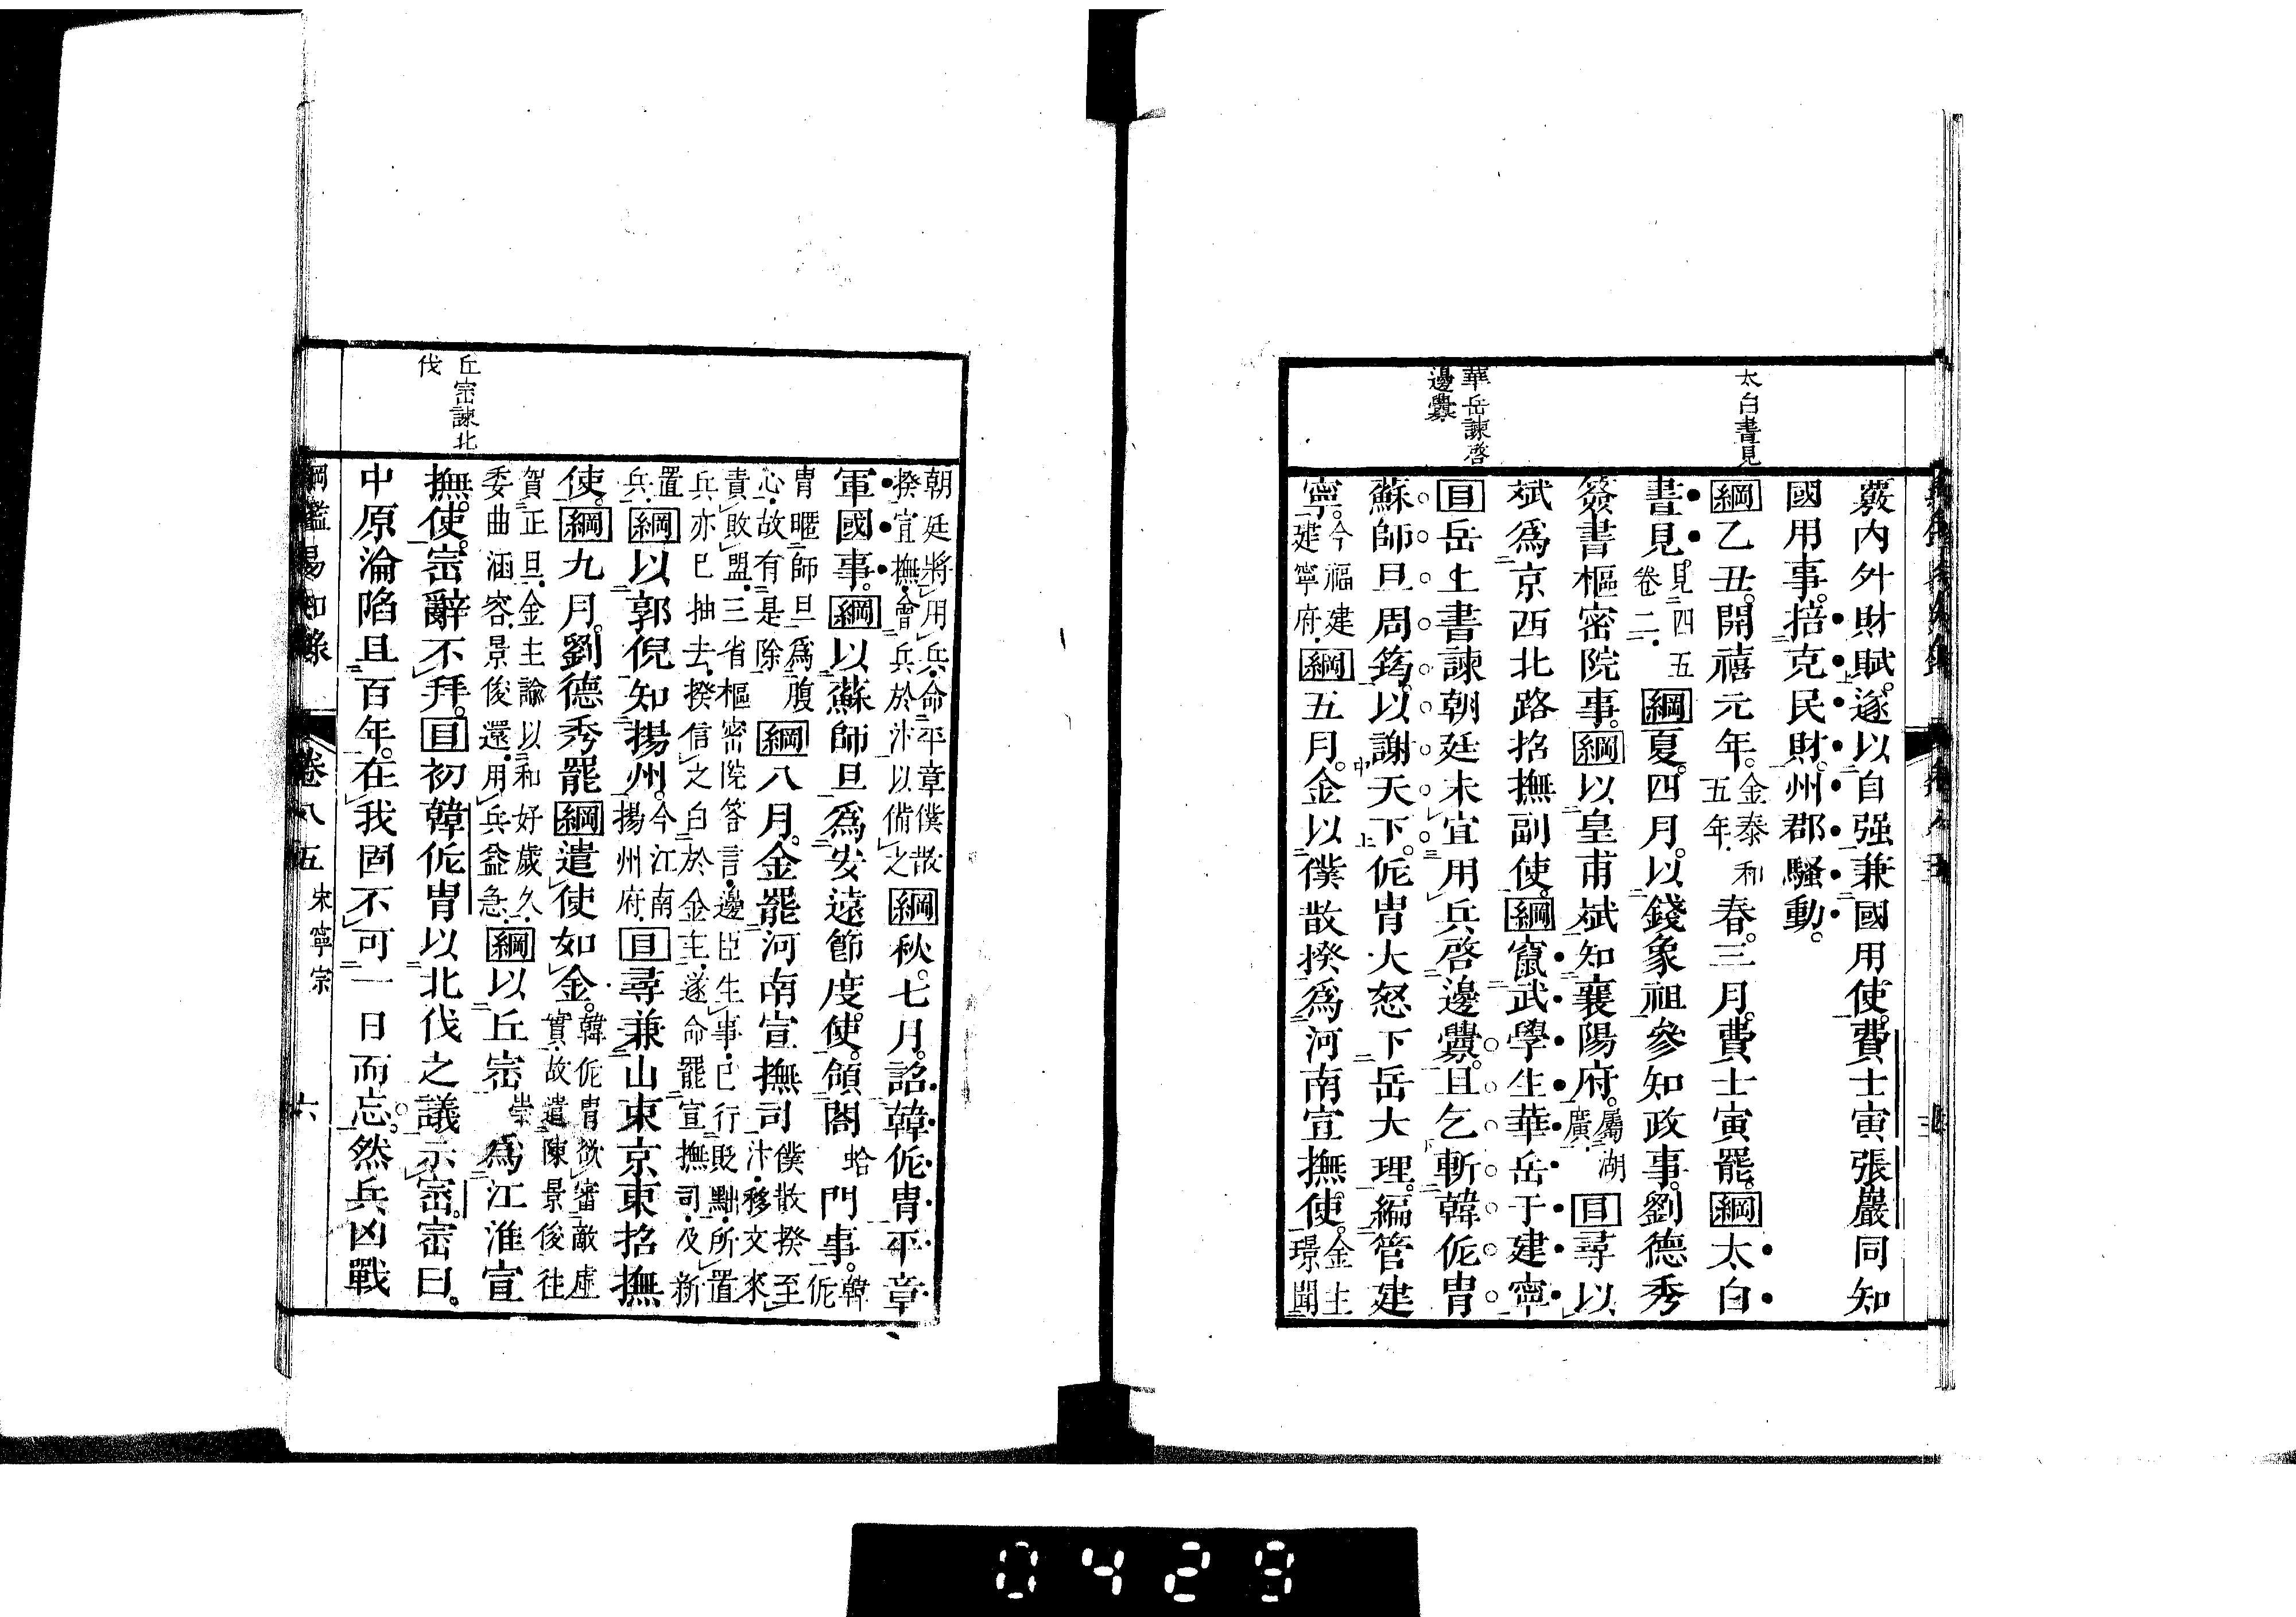 太白書見
華岳諫啓
邊釁
覈内外財賦。遂以自强兼國用使。費士寅張巖同知
國用事。掊克民財。州郡騷動。
綱乙丑。開禧元年。金泰和五年。春。三月。費士寅罷。綱太白
書見。見四五卷二。綱夏。四月。以錢象祖參知政事。劉德秀
簽書樞密院事。綱以皇甫斌知襄陽府。屬湖廣。目尋以
斌爲京西北路招撫副使。綱竄武學生華岳于建寧
目岳上書諫朝廷未宜用兵啓邊釁。且乞斬韓侂胄
蘇師旦周筠。以謝天下。侂胄大怒下岳大理。編管建
寧。今福建建寧府。綱五月。金以僕散揆爲河南宣撫使。金主璟聞
丘崈諫北
伐
朝廷將用兵。命平章僕散揆宣撫。會兵於汴以備之綱秋。七月。詔韓侂胄平章
軍國事。綱以蘇師旦爲安遠節度使。領閤蛤門事。韓侂
胄暱師旦爲腹心。故有是除綱八月。金罷河南宣撫司僕散揆至汴。移文來
責敗盟。三省樞密院答言。邊臣生事。已行貶黜。所置兵亦已抽去。揆信之白於金主。遂命罷宣撫司。及新
置兵。綱以郭倪知揚州。今江南揚州府。目尋兼山東京東招撫
使。綱九月。劉德秀罷綱遣使如金。韓侂胄欲審敵虛實。故遣陳景俊往
賀正旦。金主諭以和好歲久。委曲涵容。景俊還。用兵益急。綱以丘崈崇爲江淮宣
撫使。崈辭不拜。目初韓侂胄以北伐之議示崈。崈曰。
中原淪陷且百年。在我固不可一日而忘。然兵凶戰
綱鑑易知錄 卷八五 宋寧宗 六
0429